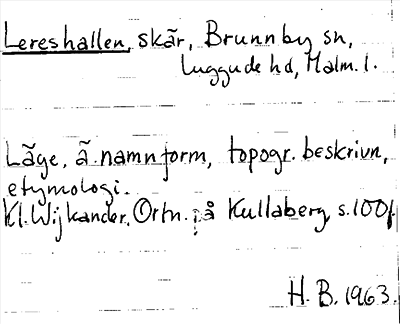 Lereshallen, skär, Brunnby sn,
Luggude hd, Malm. l.
Läge, ä. namnform, topogr. beskrivn,
etymologi.
Kl. Wijkander, Ortn. på Kullaberg, s. 100f
H. B. 1963.